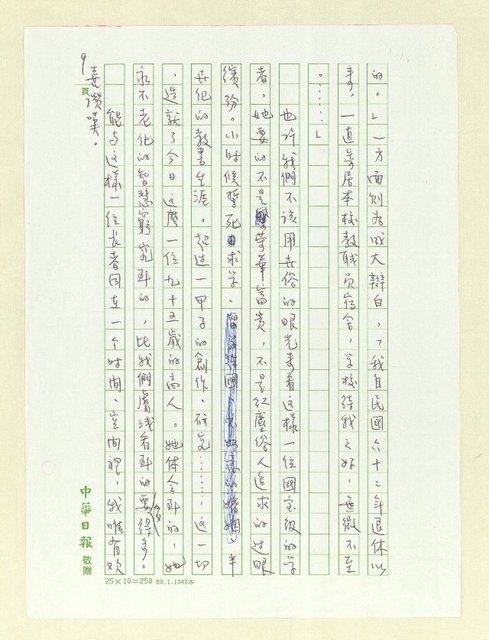 的。」一方面則為此大辯白,「我自民國六十二年退休以
來,一直寄居本校教職員宿舍,學校待我之好,無微不至
。……」
也許我們不該用世俗的眼光來看這樣一位國宝級的学
者,她要的不是榮華富貴,不是紅塵俗人追求的过眼
缤紛。小时候誓死求学、半
世纪的教書生涯,超过一甲子的創作、研究……,这一切
,造就了今日这麼一位九十五歲的高人。她体会到的,她
永不老化的智慧窮究到的,比我們膚浅看到的要多得多。
能与这樣一位長者同在一个时间、空间裡,我唯有欢
喜讚嘆。
9
頁
中華日報 敬贈
25×10=250 80.1.1040本